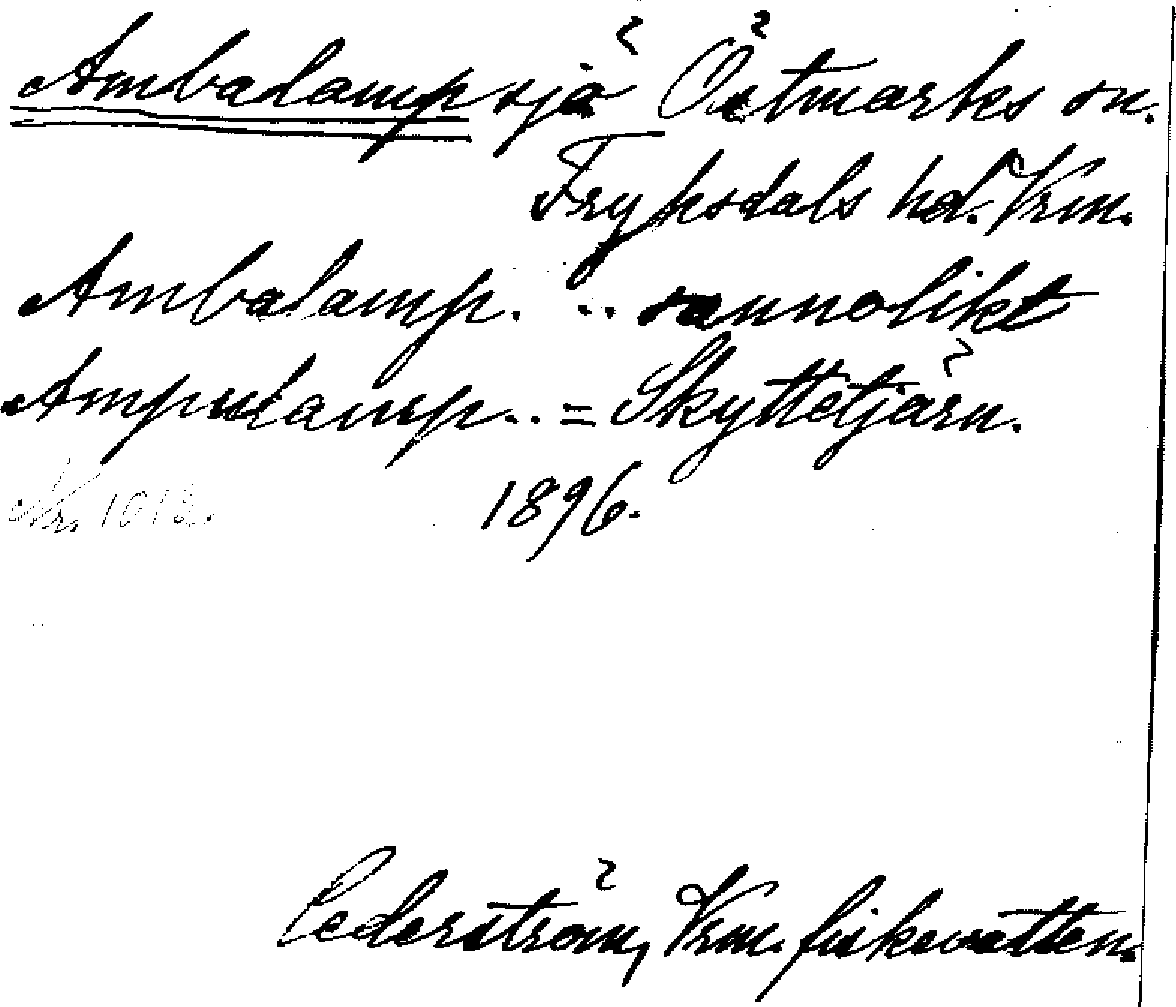 Ambalamp sjö Östmarks sn.
Fryksdals hd. Vrm.
Ambalamp. .. sannolikt
Ampulamp.. = Skyttetjärn.
Nr. 1013. 1896.
Cederström, Vrm. fiskevatten.